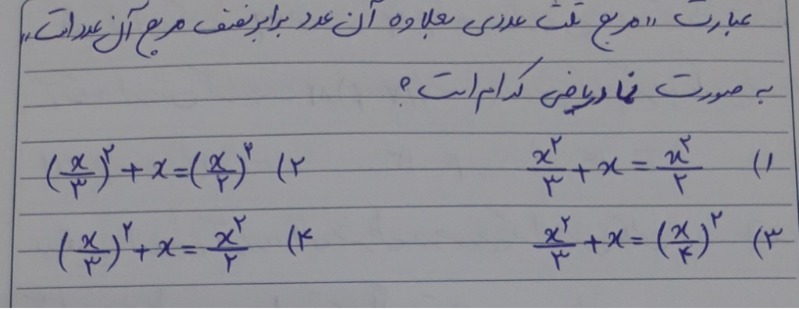 عبارت «مربع ثلث عددی بعلاوه آن عدد برابر نصف مربع آن عدد است»
به صورت نماد ریاضی کدام است؟
۱) x^۲/۳ + x = x^۲/۲ ۲) (x/۳)^۲ + x = (x/۲)^۲
۳) x^۲/۳ + x = (x/۴)^۲ ۴) (x/۳)^۲ + x = x^۲/۲